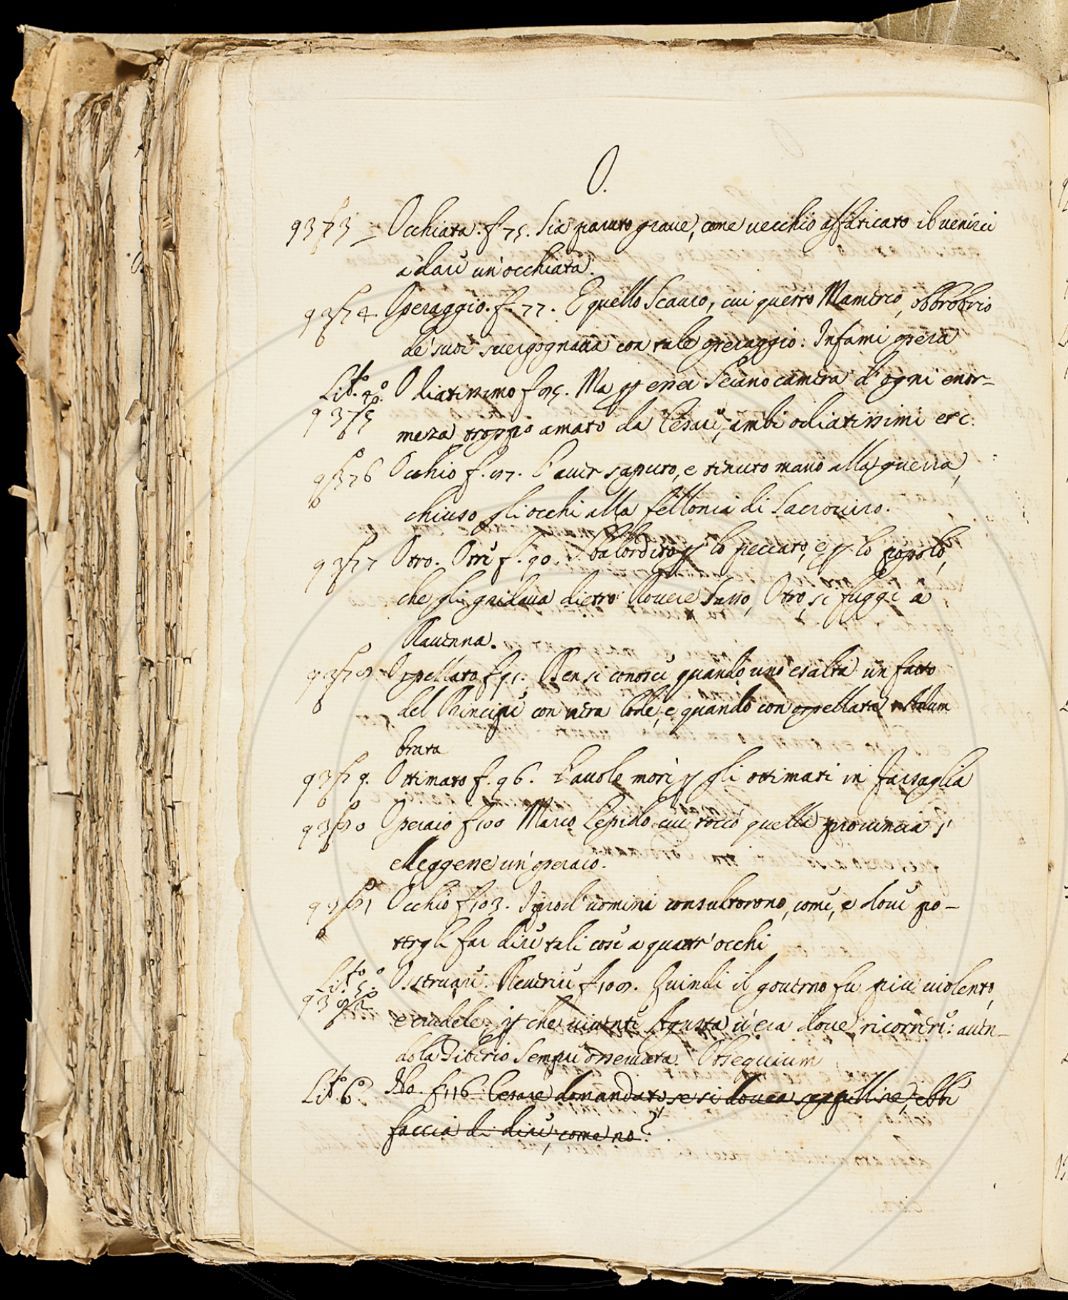 O.
9373 Occhiata. f. 75. Sia paruto graue, come uecchio affaticato il uenirci
a dare un'occhiata.
9374. Operaggio. f. 77. E quello Scauro, cui guerrò Mamerco, obbrobrio
de' suoi suergognaua con tale operaggio: Infami opera
Lib.o 4.o Odiatissimo f. 95. Ma p esser Seiano camera d'ogni enor-
9375 mezza, troppo amato da Cesare, ambi odiatissimi etc.
9376 Occhio f. 97. L'auer saputo, e tenuto mano alla guerra,
chiuso gli occhi alla fellonia di Sacrouiro.
9377 Otro. Otri f. 90. Balordito p lo peccato, e p lo popolo,
che gli gridaua dietro Rouere Sasso, Otro, si fuggì a
Rauenna.
Oppellato f. 95. Ben si conosce quando uno esalta un fatto
del Principe con uera lode, e quando con oppellata
brata
9379. Ottimato f. 96. L'auolo morì p gli ottimati in Farsaglia
9380 Operaio f. 100 Marco Lepido cui toccò quella prouincia,
elleggerne un'operaio.
9381 Occhio f. 103. I quod'uomini consultorono, come, e doue po-
tergli far dire tali cose a quattr'occhi
Lib.o 5.o Osseruare. Reurire f. 109. Quindi il gouerno fu più uiolento,
9382 e crudele; p che uiuente Agusta u'era doue ricorrere: auen-
dola Tiberio Sempre osseruata. Obsequium
Lib.o 6.o No. f. 116. Cesare domandato se si douea seppellire, ebbe
faccia di dire, come no?